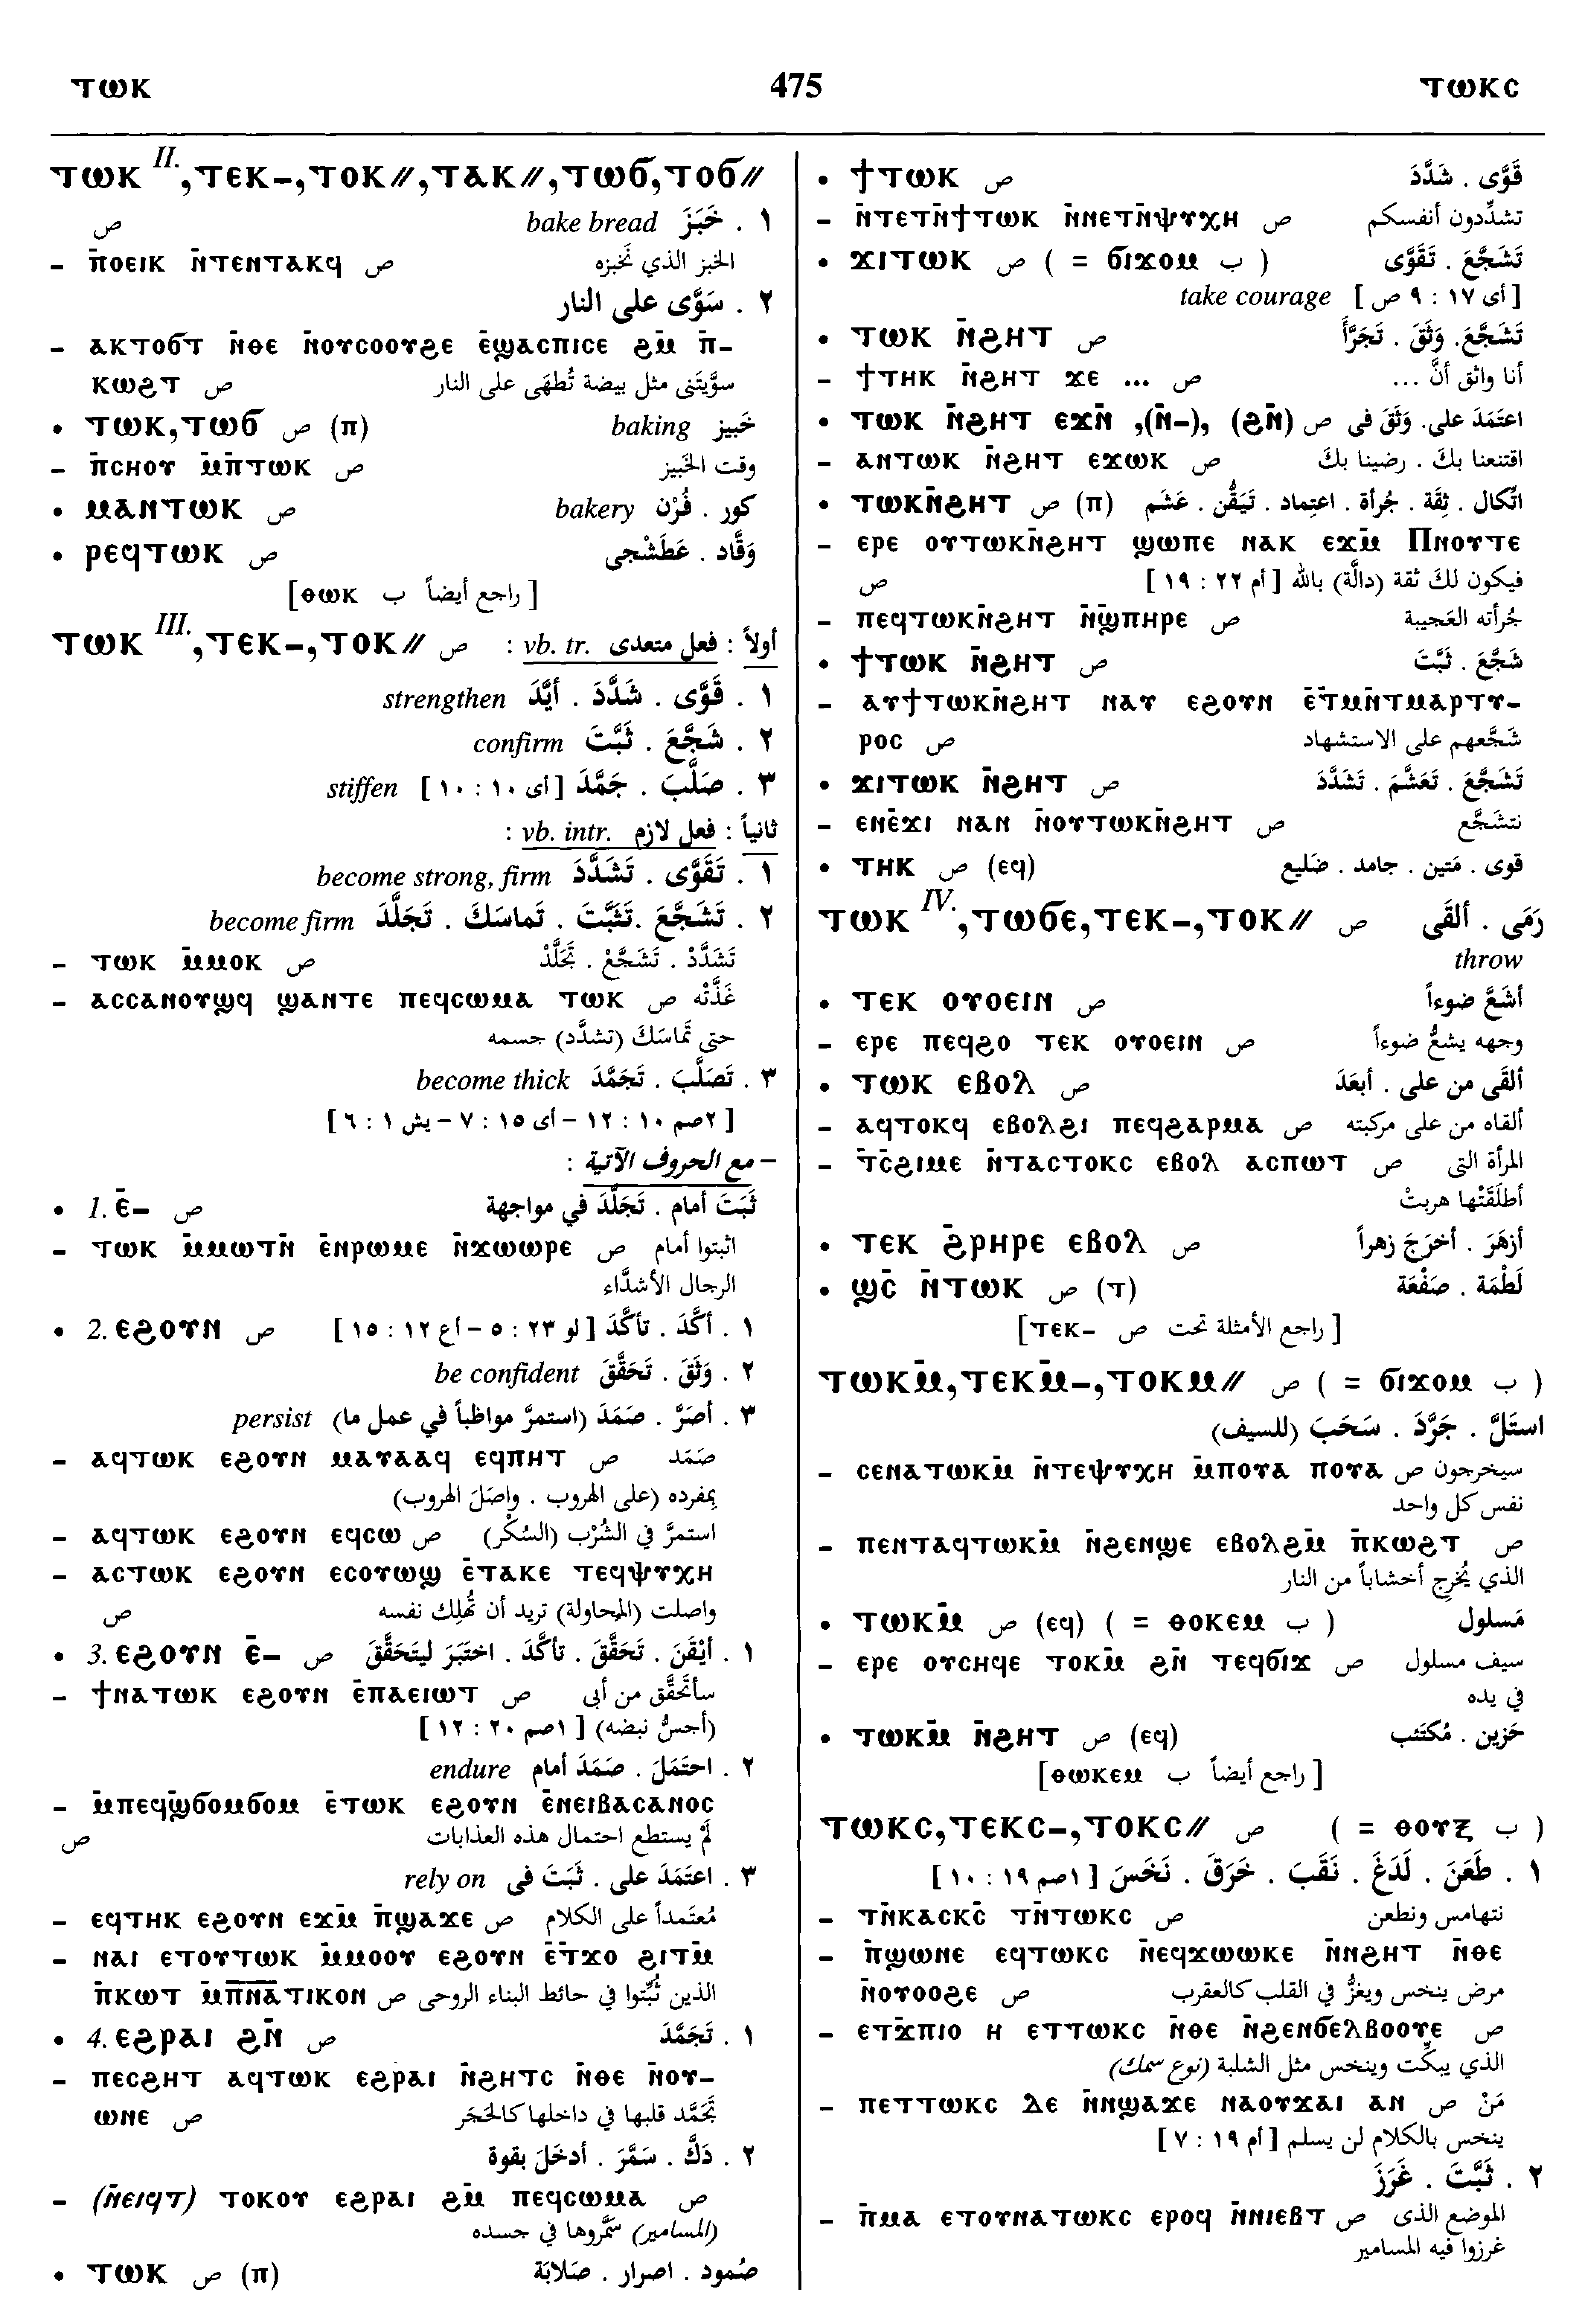 ⲧⲱⲕ 475 ⲧⲱⲕⲥ
ⲧⲱⲕ II.,ⲧⲉⲕ-,ⲧⲟⲕ//,ⲧⲁⲕ//,ⲧⲱϭ,ⲧⲟϭ//
ص bake bread ١ . خَبَزَ
- ⲡ̄ⲟⲉⲓⲕ ⲛ̄ⲧⲉⲛⲧⲁⲕϥ ص الخبز الذي نَخبزه
٢ . سَوَّى على النار
- ⲁⲕⲧⲟϭⲧ ⲛ̄ⲑⲉ ⲛ̄ⲟⲩⲥⲟⲟⲩϩⲉ ⲉ̄ϣⲁⲥⲡⲓⲥⲉ ϩⲙ̄ ⲡ̄-
ⲕⲱϩⲧ ص سوَّيتَنى مثل بيضة تُطهَى على النار
• ⲧⲱⲕ,ⲧⲱϭ ص (ⲡ) baking خَبيز
- ⲡ̄ⲥⲏⲟⲩ ⲙ̄ⲡ̄ⲧⲱⲕ ص وقت الخَبيز
• ⲙⲁⲛⲧⲱⲕ ص bakery كور . فُرْن
• ⲣⲉϥⲧⲱⲕ ص وَقَّاد . عَطَشْجى
[ راجع أيضاً ب ⲑⲱⲕ]
ⲧⲱⲕ III.,ⲧⲉⲕ-,ⲧⲟⲕ// ص أولاً : فعل متعدى vb. tr. :
١ . قَوَّى . شَدَّدَ . أيَّدَ strengthen
٢ . شَجَّعَ . ثَبَّتَ confirm
٣ . صَلَّبَ . جَمَّدَ [ أى ١٠ : ١٠ ] stiffen
ثانياً : فعل لازم vb. intr. :
١ . تَقَوَّى . تَشَدَّدَ become strong, firm
٢ . تَشَجَّعَ .تَثَبَّتَ . تَماسَكَ . تَجَلَّدَ become firm
- ⲧⲱⲕ ⲙ̄ⲙⲟⲕ ص تَشَدَّدْ . تَشَجَّعْ . تَجَلَّدْ
- ⲁⲥⲥⲁⲛⲟⲩϣϥ ϣⲁⲛⲧⲉ ⲡⲉϥⲥⲱⲙⲁ ⲧⲱⲕ ص غَذَّتْه
حتى تَماسَكَ (تشدَّد) جسمه
٣ . تَصَلَّبَ . تَجَمَّدَ become thick
[ ٢صم ١٠ : ١٢ – أى ١٥ : ٧ – يش ١ : ٦ ]
– مع الحروف الآتية :
• 1. ⲉ̄- ص ثَبَتَ أمام . تَجَلَّدَ في مواجهة
- ⲧⲱⲕ ⲙ̄ⲙⲱⲧⲛ̄ ⲉ̄ⲛⲣⲱⲙⲉ ⲛ̄ϫⲱⲱⲣⲉ ص اثبتوا أمام
الرجال الأشدَّاء
• 2. ⲉϩⲟⲩⲛ ص ١ . أكَّدَ . تأكَّدَ [ لو ٢٣ : ٥ – أع ١٢ : ١٥ ]
٢ . وَثِقَ . تَحَقَّقَ be confident
٣ . أصَرَّ . صَمَدَ (استمرَّ مواظباً في عمل ما) persist
- ⲁϥⲧⲱⲕ ⲉϩⲟⲩⲛ ⲙⲁⲩⲁⲁϥ ⲉϥⲡⲏⲧ ص صَمَد
بمفرده (على الهروب . واصَلَ الهروب)
- ⲁϥⲧⲱⲕ ⲉϩⲟⲩⲛ ⲉϥⲥⲱ ص استمرَّ في الشُرْب (السُكْر)
- ⲁⲥⲧⲱⲕ ⲉϩⲟⲩⲛ ⲉⲥⲟⲩⲱϣ ⲉ̄ⲧⲁⲕⲉ ⲧⲉϥⲯⲩⲭⲏ
ص واصلت (المحاولة) تريد أن تُهلِك نفسه
• 3. ⲉϩⲟⲩⲛ ⲉ̄- ص ١ . أيْقَنَ . تَحَقَّقَ . تأكَّدَ . اختَبَرَ ليتَحَقَّقَ
- ϯⲛⲁⲧⲱⲕ ⲉϩⲟⲩⲛ ⲉ̄ⲡⲁⲉⲓⲱⲧ ص سأتَحَقَّق من أبى
(أجسُّ نبضه) [ ١صم ٢٠ : ١٢ ]
٢ . احتَمَلَ . صَمَدَ أمام endure
- ⲙ̄ⲡⲉϥϣ̄ϭⲟⲙϭⲟⲙ ⲉ̄ⲧⲱⲕ ⲉϩⲟⲩⲛ ⲉ̄ⲛⲉⲓⲃⲁⲥⲁⲛⲟⲥ
ص لَمْ يستطع احتمال هذه العذابات
٣ . اعتَمَدَ على . ثَبَتَ فى rely on
- ⲉϥⲧⲏⲕ ⲉϩⲟⲩⲛ ⲉϫⲙ̄ ⲡ̄ϣⲁϫⲉ ص مُعتَمداً على الكلام
- ⲛⲁⲓ ⲉⲧⲟⲩⲧⲱⲕ ⲙ̄ⲙⲟⲟⲩ ⲉϩⲟⲩⲛ ⲉ̄ⲧ̄ϫⲟ ϩⲓⲧⲙ̄
ⲡ̄ⲕⲱⲧ ⲙ̄ⲡ̄ⲛ̄ⲁ̄ⲧⲓⲕⲟⲛ ص الذين ثُبِّتوا في حائط البناء الروحى
• 4. ⲉϩⲣⲁⲓ ϩⲛ̄ ص ١ . تَجَمَّدَ
- ⲡⲉⲥϩⲏⲧ ⲁϥⲧⲱⲕ ⲉϩⲣⲁⲓ ⲛ̄ϩⲏⲧⲥ ⲛ̄ⲑⲉ ⲛ̄ⲟⲩ-
ⲱⲛⲉ ص تَجَمَّد قلبها في داخلها كالحَجَر
٢ . دَكَّ . سَمَّرَ . أدخَلَ بقوة
- (ⲛ̄ⲉⲓϥⲧ) ⲧⲟⲕⲟⲩ ⲉϩⲣⲁⲓ ϩⲙ̄ ⲡⲉϥⲥⲱⲙⲁ ص
(المسامير) سَمَّروها في جسده
• ⲧⲱⲕ ص (ⲡ) صُمود . اصرار . صَلابَة
• ϯⲧⲱⲕ ص قَوَّى . شَدَّدَ
- ⲛ̄ⲧⲉⲧⲛ̄ϯⲧⲱⲕ ⲛ̄ⲛⲉⲧⲛ̄ⲯⲩⲭⲏ ص تشدِّدون أنفسكم
• ϫⲓⲧⲱⲕ ص ( = ϭⲓϫⲟⲙ ب ) تَشَجَّعَ . تَقَوَّى
take courage [ أى ١٧ : ٩ ص ]
• ⲧⲱⲕ ⲛ̄ϩⲏⲧ ص تَشَجَّعَ. وَثِقَ . تَجَرَّأَ
- ϯⲧⲏⲕ ⲛ̄ϩⲏⲧ ϫⲉ ... ص أنا واثق أنَّ ...
• ⲧⲱⲕ ⲛ̄ϩⲏⲧ ⲉϫⲛ̄ ,(ⲛ̄-), (ϩⲛ̄) ص اعتَمَدَ على. وَثِقَ فى
- ⲁⲛⲧⲱⲕ ⲛ̄ϩⲏⲧ ⲉϫⲱⲕ ص اقتنعنا بكَ . رضينا بكَ
• ⲧⲱⲕⲛ̄ϩⲏⲧ ص (ⲡ) اتِّكال . ثِقَة . جُرأة . اعتِماد . تَيَقُّن . عَشَم
- ⲉⲣⲉ ⲟⲩⲧⲱⲕⲛ̄ϩⲏⲧ ϣⲱⲡⲉ ⲛⲁⲕ ⲉϫⲙ̄ Ⲡⲛⲟⲩⲧⲉ
ص فيكون لكَ ثقة (دالَّة) بالله [ أم ٢٢ : ١٩ ]
- ⲡⲉϥⲧⲱⲕⲛ̄ϩⲏⲧ ⲛ̄ϣ̄ⲡⲏⲣⲉ ص جُرأته العَجيبة
• ϯⲧⲱⲕ ⲛ̄ϩⲏⲧ ص شَجَّعَ . ثَبَّتَ
- ⲁⲩϯⲧⲱⲕⲛ̄ϩⲏⲧ ⲛⲁⲩ ⲉϩⲟⲩⲛ ⲉ̄ⲧⲙⲛ̄ⲧⲙⲁⲣⲧⲩ-
ⲣⲟⲥ ص شَجَّعهم على الاستشهاد
• ϫⲓⲧⲱⲕ ⲛ̄ϩⲏⲧ ص تَشَجَّعَ . تَعَشَّمَ . تَشَدَّدَ
- ⲉⲛⲉ̄ϫⲓ ⲛⲁⲛ ⲛ̄ⲟⲩⲧⲱⲕⲛ̄ϩⲏⲧ ص نتشَجَّع
• ⲧⲏⲕ ص (ⲉϥ) قوى . مَتين . جامد . ضَليع
ⲧⲱⲕ IV.,ⲧⲱϭⲉ,ⲧⲉⲕ-,ⲧⲟⲕ// ص رَمَى . ألقَى
throw
• ⲧⲉⲕ ⲟⲩⲟⲉⲓⲛ ص أشَعَّ ضوءاً
- ⲉⲣⲉ ⲡⲉϥϩⲟ ⲧⲉⲕ ⲟⲩⲟⲉⲓⲛ ص وجهه يشعُّ ضوءاً
• ⲧⲱⲕ ⲉⲃⲟⲗ ص ألقَى من على . أبعَدَ
- ⲁϥⲧⲟⲕϥ ⲉⲃⲟⲗϩⲓ ⲡⲉϥϩⲁⲣⲙⲁ ص ألقاه من على مركبته
- ⲧ̄ⲥ̄ϩⲓⲙⲉ ⲛ̄ⲧⲁⲥⲧⲟⲕⲥ ⲉⲃⲟⲗ ⲁⲥⲡⲱⲧ ص المرأة التى
أطلَقَتْها هربتْ
• ⲧⲉⲕ ϩ̄ⲣⲏⲣⲉ ⲉⲃⲟⲗ ص أزهَرَ . أخرَجَ زهراً
• ϣⲥ̄ ⲛ̄ⲧⲱⲕ ص (ⲧ) لَطْمَة . صَفْعَة
[ راجع الأمثلة تحت ص ⲧⲉⲕ-]
ⲧⲱⲕⲙ̄,ⲧⲉⲕⲙ̄-,ⲧⲟⲕⲙ// ص ( = ϭⲓϫⲟⲙ ب )
استَلَّ . جَرَّدَ . سَحَبَ (للسيف)
- ⲥⲉⲛⲁⲧⲱⲕⲙ̄ ⲛ̄ⲧⲉⲯⲩⲭⲏ ⲙ̄ⲡⲟⲩⲁ ⲡⲟⲩⲁ ص سيخرجون
نفس كل واحد
- ⲡⲉⲛⲧⲁϥⲧⲱⲕⲙ̄ ⲛ̄ϩⲉⲛϣⲉ ⲉⲃⲟⲗϩⲙ̄ ⲡ̄ⲕⲱϩⲧ ص
الذي يُخرِج أخشاباً من النار
• ⲧⲱⲕⲙ̄ ص (ⲉϥ) ( = ⲑⲟⲕⲉⲙ ب ) مَسلول
- ⲉⲣⲉ ⲟⲩⲥⲏϥⲉ ⲧⲟⲕⲙ̄ ϩⲛ̄ ⲧⲉϥϭⲓϫ ص سيف مسلول
في يده
• ⲧⲱⲕⲙ̄ ⲛ̄ϩⲏⲧ ص (ⲉϥ) حَزين . مُكتَئب
[ راجع أيضاً ب ⲑⲱⲕⲉⲙ]
ⲧⲱⲕⲥ,ⲧⲉⲕⲥ-,ⲧⲟⲕⲥ// ص ( = ⲑⲟⲩⲝ ب )
١ . طَعَنَ . لَدَغَ . نَقَبَ . خَرَقَ . نَخَسَ [ ١صم ١٩ : ١٠ ]
- ⲧⲛ̄ⲕⲁⲥⲕⲥ̄ ⲧⲛ̄ⲧⲱⲕⲥ ص نتهامس ونطعن
- ⲡ̄ϣⲱⲛⲉ ⲉϥⲧⲱⲕⲥ ⲛ̄ⲉϥϫⲱⲱⲕⲉ ⲛ̄ⲛϩⲏⲧ ⲛ̄ⲑⲉ
ⲛ̄ⲟⲩⲟⲟϩⲉ ص مرض ينخس ويغزُّ في القلب كالعقرب
- ⲉⲧϫ̄ⲡⲓⲟ ⲏ ⲉⲧⲧⲱⲕⲥ ⲛ̄ⲑⲉ ⲛ̄ϩⲉⲛϭⲉⲗⲃⲟⲟⲩⲉ ص
الذي يبكِّت وينخس مثل الشلبة (نوع سمك)
- ⲡⲉⲧⲧⲱⲕⲥ ⲇⲉ ⲛ̄ⲛϣⲁϫⲉ ⲛⲁⲟⲩϫⲁⲓ ⲁⲛ ص مَنْ
ينخس بالكلام لن يسلم [ أم ١٩ : ٧ ]
٢ . ثَبَّتَ . غَرَزَ
- ⲡ̄ⲙⲁ ⲉⲧⲟⲩⲛⲁⲧⲱⲕⲥ ⲉⲣⲟϥ ⲛ̄ⲛⲓⲉⲃⲧ ص الموضع الذى
غرزوا فيه المسامير